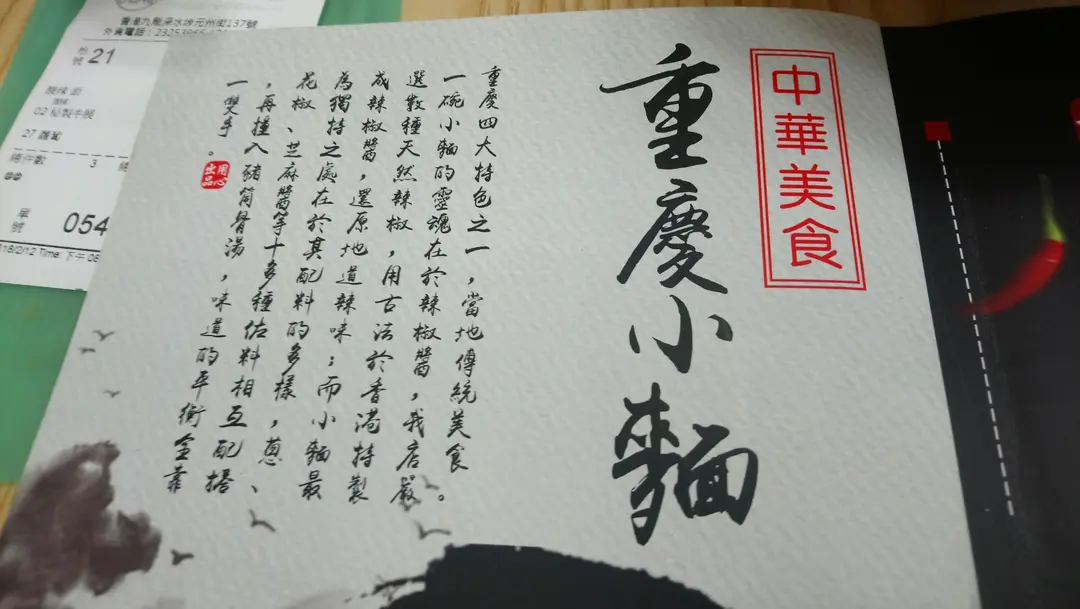 中華美食
重慶小麵
重慶四大特色之一，當地傳統美食。
一碗小麵的靈魂在於辣椒醬，我店嚴
選數種天然辣椒，用古法於香港特製
成辣椒醬，還原地道辣味；而小麵最
為獨特之處在於其配料的多樣，蔥、
花椒、芝麻醬等十多種佐料相互配搭
，再撞入豬筒骨湯，味道的平衡全靠
一雙手。
用心出品
香港九龍深水埗元州街137號
外賣電話：23253965
枱號 21
酸辣
02 秘製牛展
27 蘿蔔
總件數 3
單號 054
Time: 下午